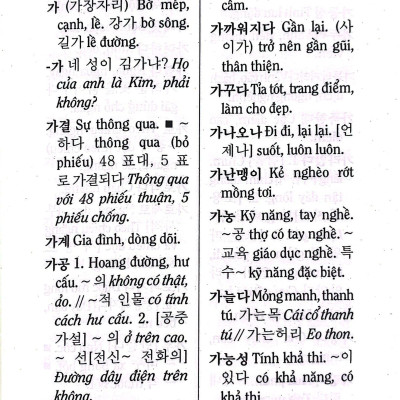 가 (가장자리) Bờ mép,
cạnh, lề. 강가 bờ sông.
길가 lề đường.
-가 네 성이 김가냐? Họ
của anh là Kim, phải
không?
가결 Sự thông qua. ■ ~
하다 thông qua (bỏ
phiếu) 48 표대, 5 표
로 가결되다 Thông qua
với 48 phiếu thuận, 5
phiếu chống.
가계 Gia đình, dòng dõi.
가공 1. Hoang đường, hư
cấu. ~ 의 không có thật,
ảo. // ~적 인물 có tính
cách hư cấu. 2. [공중
가설] ~ 의 ở trên cao.
~ 선[전신~ 전화의]
Đường dây điện trên
không.
cấm.
가까워지다 Gần lại. (사
이가) trở nên gần gũi,
thân thiện.
가꾸다 Tỉa tót, trang điểm,
làm cho đẹp.
가나오나 Đi đi, lại lại. [언
제나] suốt, luôn luôn.
가난맹이 Kẻ nghèo rớt
mồng tơi.
가농 Kỹ năng, tay nghề.
~공 thợ có tay nghề. ~
교육 giáo dục nghề. 특
수~ kỹ năng đặc biệt.
가늘다 Mỏng manh, thanh
tú. 가는목 Cái cổ thanh
tú // 가는허리 Eo thon.
가능성 Tính khả thi. ~이
있다 có khả năng, có
khả thi